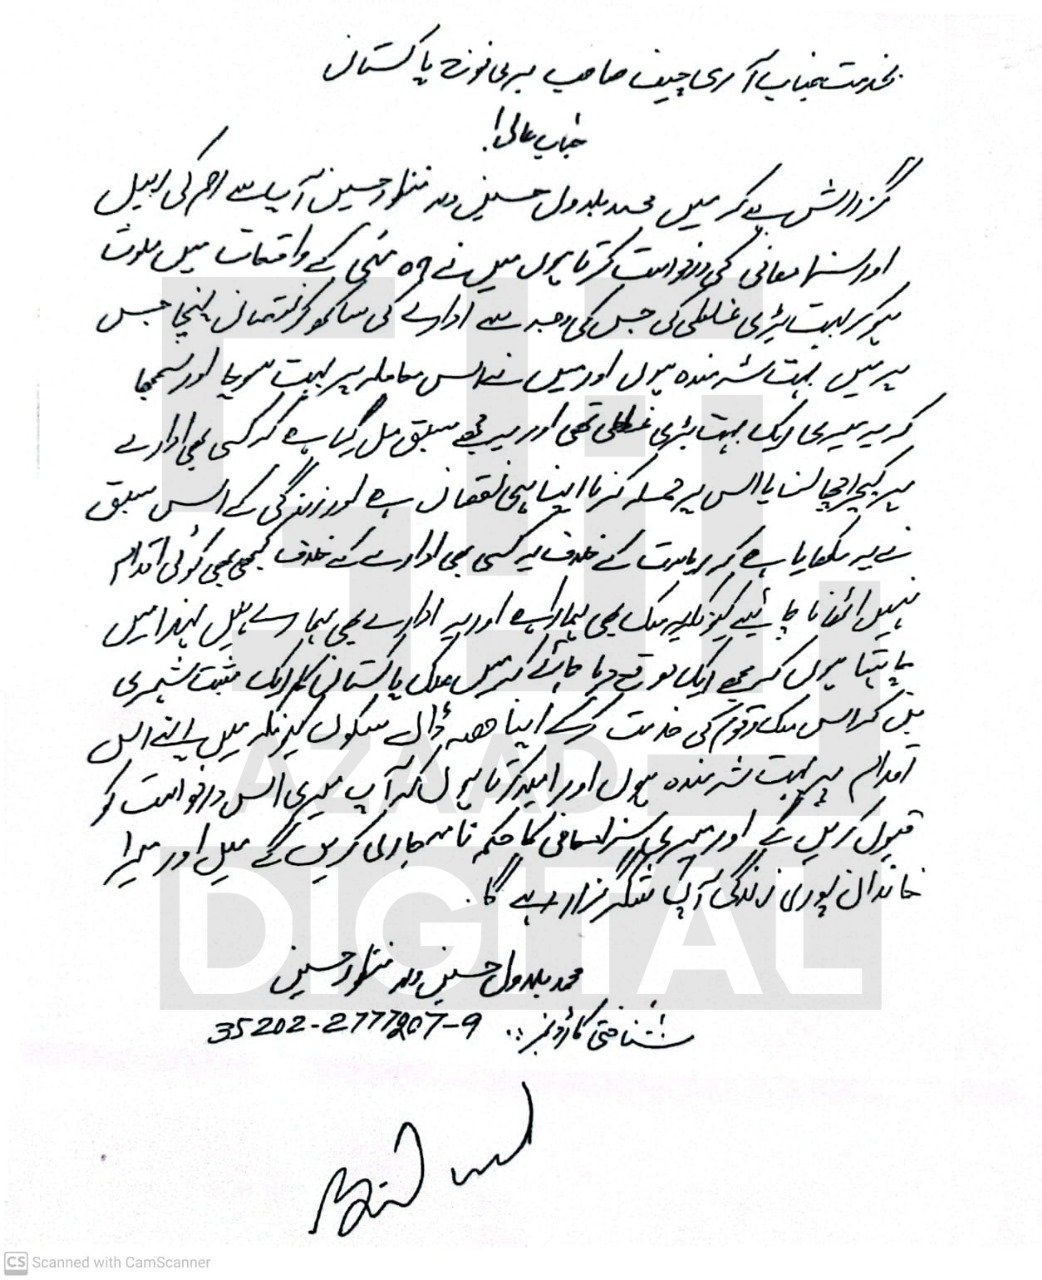 بخدمت جناب آرمی چیف صاحب بری فوج پاکستان
جناب عالی!
گزارش ہے کہ میں محمد بلاول حسین ولد منظور حسین آپ سے رحم کی اپیل
اور سزا معافی کی درخواست کرتا ہوں میں نے 09 مئی کے واقعات میں ملوث
ہو کر بہت بڑی غلطی کی جس کی وجہ سے ادارے کی ساکھ کو نقصان پہنچا جس
پر میں بہت شرمندہ ہوں اور میں نے اس معاملہ پر بہت سوچا اور سمجھا
کہ یہ میری ایک بہت بڑی غلطی تھی اور یہ مجھے سبق مل گیا ہے کہ کسی بھی ادارے
پر کیچڑ اچھالنا یا اس پر حملہ کرنا اپنا ہی نقصان ہے اور زندگی کے اس سبق
نے یہ سکھایا ہے کہ ریاست کے خلاف یہ کسی بھی ادارے کے خلاف کبھی بھی کوئی اقدام
نہیں اٹھانا چاہیئے کیونکہ یہ ملک بھی ہمارا ہے اور یہ ادارے بھی ہمارے ہیں لہذا میں
چاہتا ہوں کہ مجھے ایک موقع دیا جائے کہ میں ملک پاکستان کا ایک مثبت شہری
بن کر اس ملک و قوم کی خدمت کر کے اپنا حصہ ڈال سکوں کیونکہ میں اپنے اس
اقدام پر بہت شرمندہ ہوں اور امید کرتا ہوں کہ آپ میری اس درخواست کو
قبول کریں گے اور میری سزا معافی کا حکم نامہ جاری کریں گے میں اور میرا
خاندان پوری زندگی آپکا شکر گزار رہے گا۔
محمد بلاول حسین ولد منظور حسین
شناختی کارڈ نمبر :. 35202-2777207-9
AZAAD
DIGITAL
CS Scanned with CamScanner